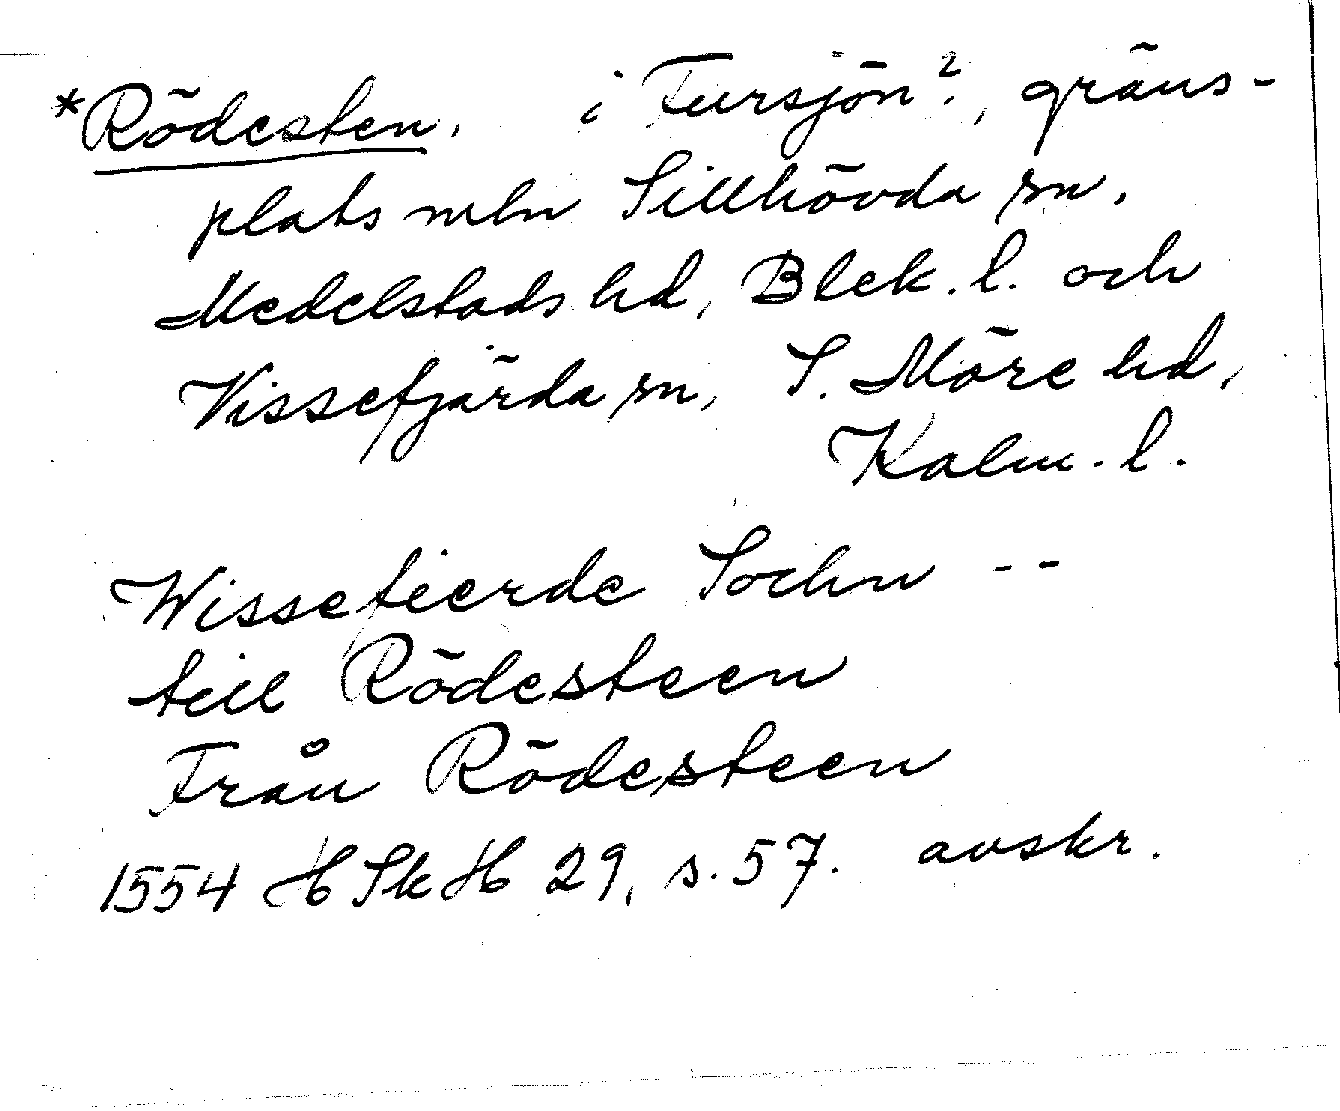 *Rödesten. i Tursjön?, gräns-
plats mln Sillhövda sn,
Medelstads hd, Blek. l. och
Vissefjärda sn, S. Möre hd,
Kalm. l.
Wissefierde Sochn --
till Rödesteen
Från Rödesteen
1554 HSkH 29, s. 57. avskr.